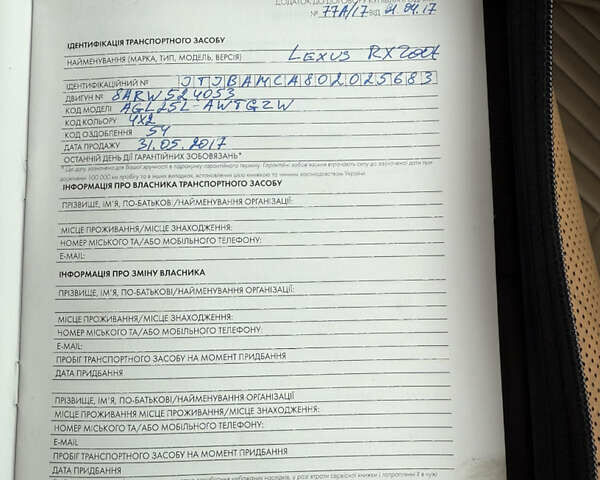 ДОДАТОК ДО ДОГОВОРУ
№ 77А/17 ВІД 21.04.17
ІДЕНТИФІКАЦІЯ ТРАНСПОРТНОГО ЗАСОБУ
НАЙМЕНУВАННЯ (МАРКА, ТИП, МОДЕЛЬ, ВЕРСІЯ) LEXUS RX200t
ІДЕНТИФІКАЦІЙНИЙ № JTJBAMCA802025683
ДВИГУН № 8ARW524053
КОД МОДЕЛІ AGL25L-AWTGZW
КОД КОЛЬОРУ 4X2
КОД ОЗДОБЛЕННЯ 54
ДАТА ПРОДАЖУ 31.05.2017
ОСТАННІЙ ДЕНЬ ДІЇ ГАРАНТІЙНИХ ЗОБОВЯЗАНЬ*
ІНФОРМАЦІЯ ПРО ВЛАСНИКА ТРАНСПОРТНОГО ЗАСОБУ
ПРІЗВИЩЕ, ІМ'Я, ПО-БАТЬКОВІ/НАЙМЕНУВАННЯ ОРГАНІЗАЦІЇ:
МІСЦЕ ПРОЖИВАННЯ/МІСЦЕ ЗНАХОДЖЕННЯ:
НОМЕР МІСЬКОГО ТА/АБО МОБІЛЬНОГО ТЕЛЕФОНУ:
E-MAIL:
ІНФОРМАЦІЯ ПРО ЗМІНУ ВЛАСНИКА
ПРІЗВИЩЕ, ІМ'Я, ПО-БАТЬКОВІ/НАЙМЕНУВАННЯ ОРГАНІЗАЦІЇ:
МІСЦЕ ПРОЖИВАННЯ/МІСЦЕ ЗНАХОДЖЕННЯ:
НОМЕР МІСЬКОГО ТА/АБО МОБІЛЬНОГО ТЕЛЕФОНУ:
E-MAIL:
ПРОБІГ ТРАНСПОРТНОГО ЗАСОБУ НА МОМЕНТ ПРИДБАННЯ
ДАТА ПРИДБАННЯ
ПРІЗВИЩЕ, ІМ'Я, ПО-БАТЬКОВІ/НАЙМЕНУВАННЯ ОРГАНІЗАЦІЇ
МІСЦЕ ПРОЖИВАННЯ МІСЦЕ ПРОЖИВАННЯ/МІСЦЕ ЗНАХОДЖЕННЯ:
НОМЕР МІСЬКОГО ТА/АБО МОБІЛЬНОГО ТЕЛЕФОНУ:
E-MAIL
ПРОБІГ ТРАНСПОРТНОГО ЗАСОБУ НА МОМЕНТ ПРИДБАННЯ
ДАТА ПРИДБАННЯ